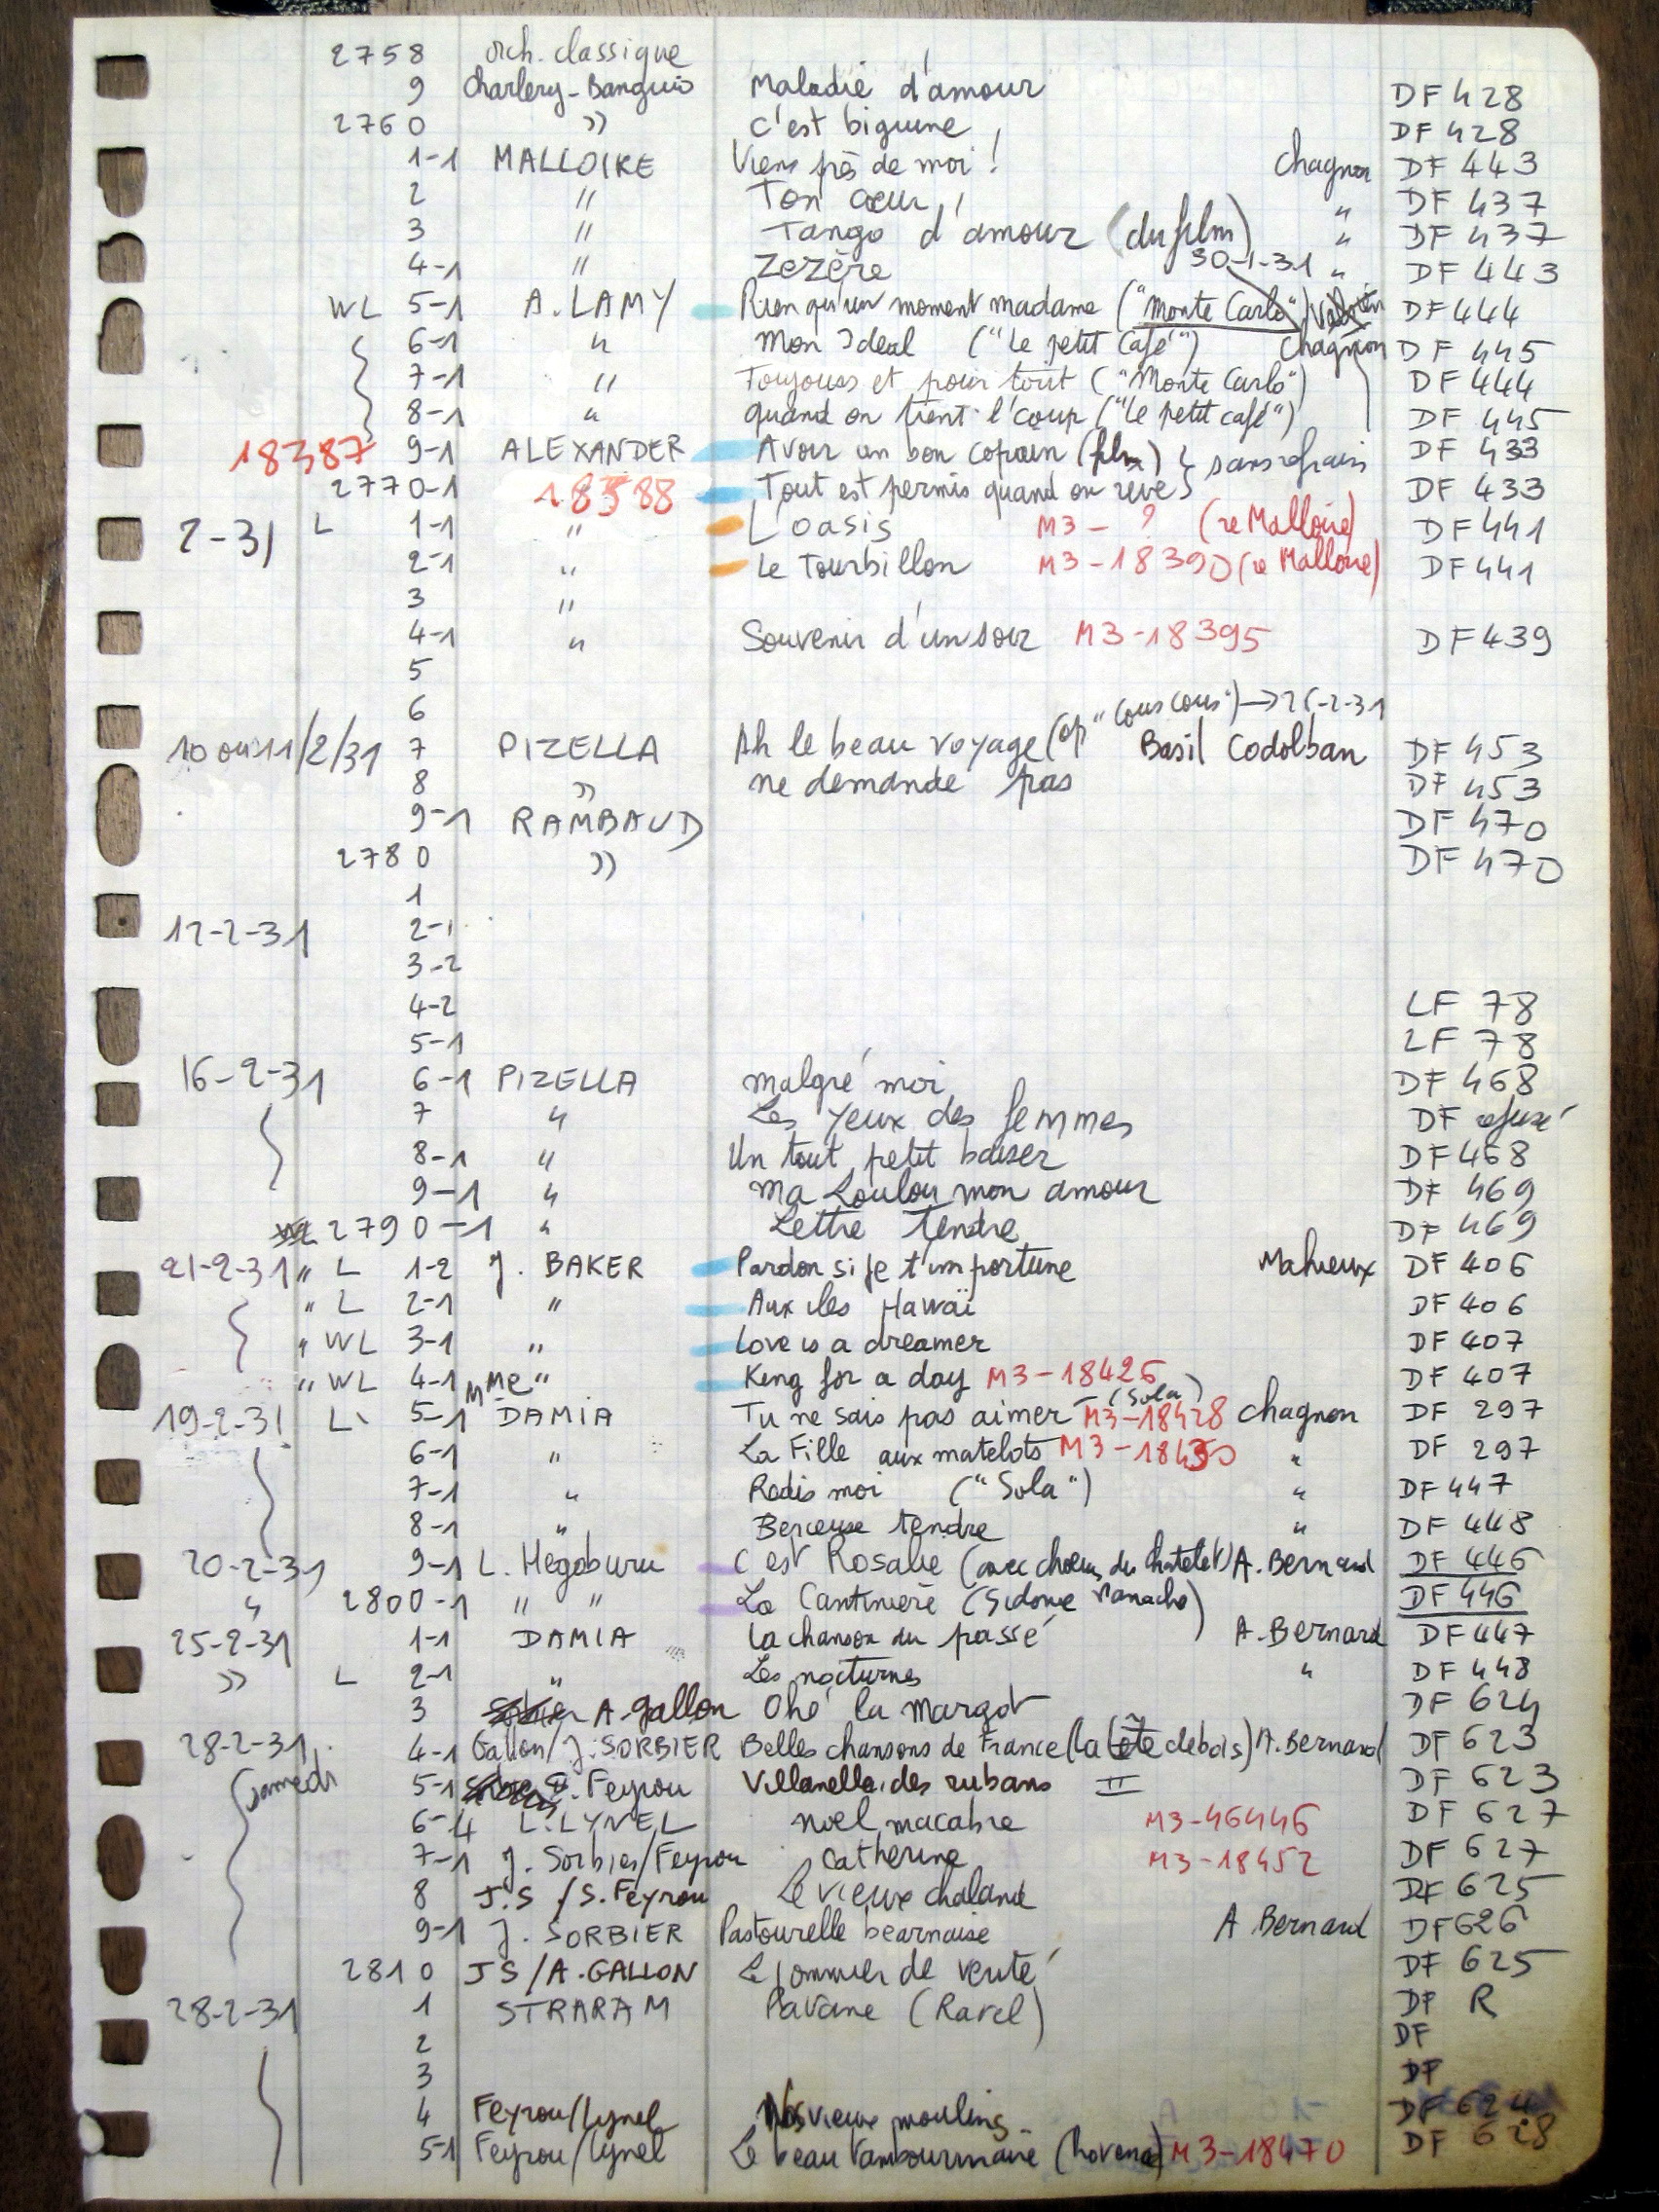 2758 orch. classique
9 Charlery-Banguio Maladie d'amour DF 428
2760 " c'est biguine DF 428
1-1 MALLOIRE Viens près de moi ! Chagnon DF 443
2 " Ton cœur ! " DF 437
3 " Tango d'amour (du film) " DF 437
4-1 " Zezère 30-1-31 " DF 443
WL 5-1 A. LAMY Rien qu'un moment madame ("Monte Carlo") DF 444
6-1 " Mon Ideal ("Le petit Café") Chagnon DF 445
7-1 " Toujours et pour tout ("Monte Carlo") DF 444
8-1 " quand on tient l'coup ("Le petit café") DF 445
18387 9-1 ALEXANDER Avoir un bon copain (film) } sans refrain DF 433
2770-1 18388 Tout est permis quand on reve DF 433
2-31 L 1-1 " L'oasis M3 - ? (re Malloire) DF 441
2-1 " Le Tourbillon M3-18390 (re Malloire) DF 441
3 "
4-1 " Souvenir d'un soir M3-18395 DF 439
5
6
10 ou 11/2/31 7 PIZELLA Ah le beau voyage (op "Cous cous") → 26-2-31 Basil Codolban DF 453
8 " ne demande pas DF 453
9-1 RAMBAUD DF 470
2780 " DF 470
1
12-2-31 2-1
3-2
4-2 LF 78
5-1 LF 78
16-2-31 6-1 PIZELLA malgré moi DF 468
7 " Les Yeux des femmes DF refusé
8-1 " Un tout petit baiser DF 468
9-1 " Ma Loulou mon amour DF 469
2790-1 " Lettre tendre DF 469
21-2-31 " L 1-2 J. BAKER Pardon si je t'importune Mahieux DF 406
" L 2-1 " Aux iles Hawaï DF 406
" WL 3-1 " Love is a dreamer DF 407
" WL 4-1 " King for a day M3-18426 DF 407
19-2-31 L 5-1 Mme DAMIA Tu ne sais pas aimer (Sola) M3-18428 Chagnon DF 297
6-1 " La Fille aux matelots M3-18430 " DF 297
7-1 " Redis moi ("Sola") " DF 447
8-1 " Berceuse tendre " DF 448
20-2-31 9-1 L. Hégoburu C'est Rosalie (avec chœurs du chatelet) A. Bernard DF 446
" 2800-1 " " La Cantinière (Sidonie Panache) DF 446
25-2-31 1-1 DAMIA La chanson du passé A. Bernard DF 447
" L 2-1 " Les nocturnes " DF 448
3 A. gallon Ohé la Margot DF 624
28-2-31 4-1 Gallon/J. SORBIER Belles chansons de France (la tête de bois) A. Bernard DF 623
samedi 5-1 Feyrou Villanella des rubans II DF 623
6-4 L. LYNEL noel macabre M3-46446 DF 627
7-1 J. Sorbier/Feyrou Catherine M3-18452 DF 627
8 J.S / S. Feyrou Le vieux chaland DF 625
9-1 J. SORBIER Pastourelle bearnaise A Bernard DF 626
2810 JS/A. GALLON Le pommier de verité DF 625
28-2-31 1 STRARAM Pavane (Ravel) DF R
2 DF
3 DF
4 Feyrou/Lynel Nos vieux moulins DF 624
5-1 Feyrou/Lynel Le beau tambourinaire M3-18470 DF 628